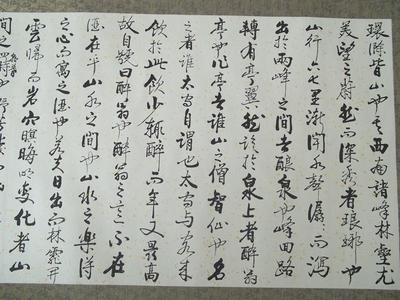 環滁皆山也其西南諸峰林壑尤
美望之蔚然而深秀者琅琊也
山行六七里漸聞水聲潺潺而瀉
出於兩峰之間者釀泉也峰回路
轉有亭翼然臨於泉上者醉翁
亭也作亭者誰山之僧智仙也名
之者誰太守自謂也太守與客來
飲於此飲少輒醉而年又最高
故自號曰醉翁也醉翁之意不在
酒在乎山水之間也山水之樂得
之心而寓之酒也若夫日出而林霏開
雲歸而岩穴暝晦明變化者山
間之